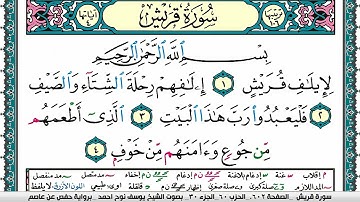 سُورَةُ قُرَيْشٍ
بِسْمِ ٱللَّهِ ٱلرَّحْمَٰنِ ٱلرَّحِيمِ
لِإِيلَٰفِ قُرَيْشٍ ١ إِۦلَٰفِهِمْ رِحْلَةَ ٱلشِّتَآءِ وَٱلصَّيْفِ
٢ فَلْيَعْبُدُوا۟ رَبَّ هَٰذَا ٱلْبَيْتِ ٣ ٱلَّذِىٓ أَطْعَمَهُم
مِّن جُوعٍ وَءَامَنَهُم مِّنْ خَوْفٍۭ ٤
سورة قريش الصفحة ٦٠٢ الحزب ٦٠ الجزء ٣٠ بصوت الشيخ يوسف نوح احمد برواية حفص عن عاصم